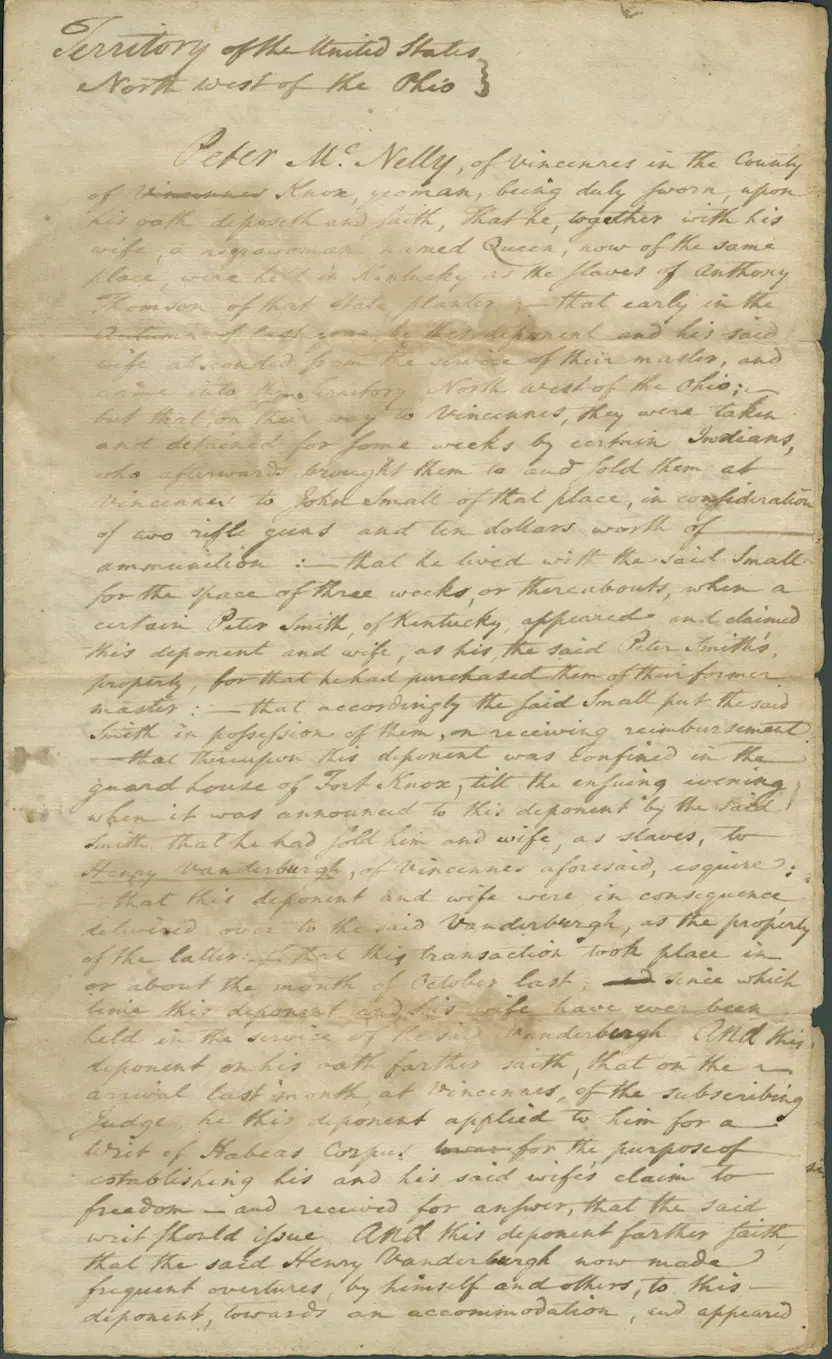 Territory of the United States
North west of the Ohio }
Peter Mc. Nelly, of Vincennes in the County
of Vincennes Knox, yeoman, being duly sworn, upon
his oath deposeth and saith, That he, together with his
wife, a negro woman named Queen, now of the same
place, were held in Kentucky as the slaves of Anthony
Thomson of that state planter :— that early in the
Autumn of last year, he this deponent and his said
wife absconded from the service of their master, and
came into the Territory North west of the Ohio;—
but that, on their way to Vincennes, they were taken
and detained for some weeks by certain Indians,
who afterwards brought them to and sold them at
Vincennes to John Small of that place, in consideration
of two rifle guns and ten dollars worth of ———
ammunition :— that he lived with the said Small
for the space of three weeks, or thereabouts, when a
certain Peter Smith, of Kentucky, appeared and claimed
this deponent and wife, as his, the said Peter Smith's,
property, for that he had purchased them of their former
master :— that accordingly the said Small put the said
Smith in possession of them, on receiving reimbursement
—that thereupon this deponent was confined in the
guard house of Fort Knox, till the ensuing evening,
when it was announced to this deponent by the said
Smith that he had sold him and wife, as slaves, to
Henry Vanderburgh, of Vincennes aforesaid, esquire:
—that this deponent and wife were in consequence
delivered over to the said Vanderburgh, as the property
of the latter:— that this transaction took place in
or about the month of October last; and since which
time this deponent and his wife have ever been
held in the service of the said Vanderburgh And this
deponent on his oath farther saith, that on the
arrival last month, at Vincennes, of the subscribing
Judge, he this deponent applied to him for a
Writ of Habeas Corpus for the purpose of
establishing his and his said wife's claim to
freedom — and received for answer, that the said
writ should issue And this deponent farther saith,
that the said Henry Vanderburgh now made
frequent overtures, by himself and others, to this
deponent, towards an accommodation, and appeared